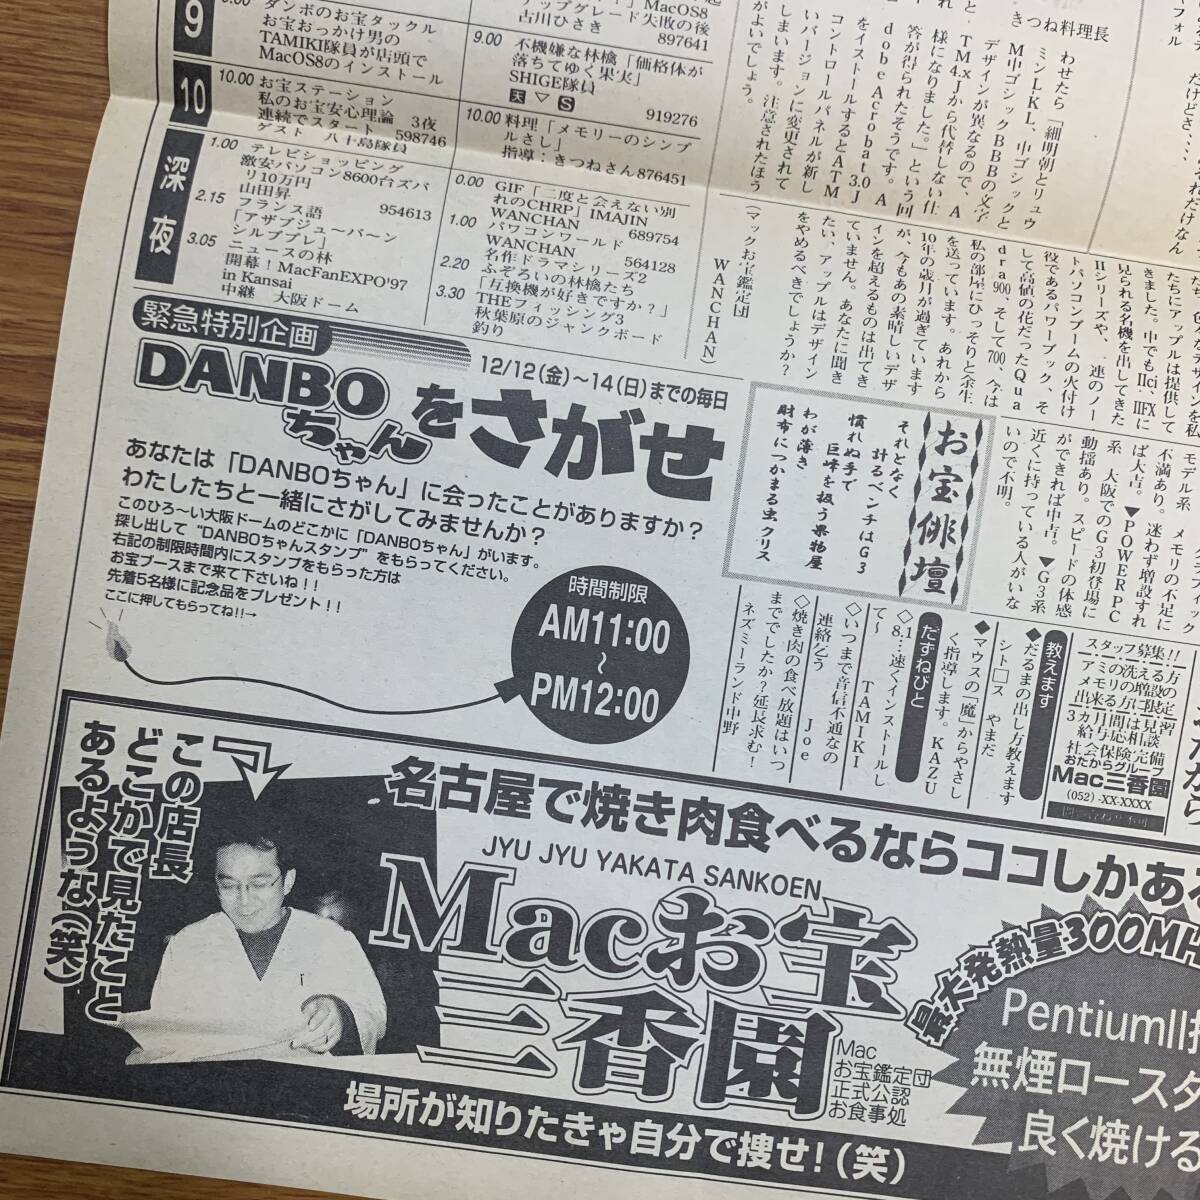 9
9.00
ダンボのお宝タックル
お宝おっかけ男の
TAMIKI隊員が店頭で
MacOS8のインストール
10
10.00 お宝ステーション
私のお宝安心理論 3夜
連続でスタート 598746
ゲスト 八十島隊員
深夜
1.00 テレビショッピング
激安パソコン8600台ズバ
リ10万円
山田昇 954613
2.15 フランス語
「アザブジュ〜バ〜ン
シルブプレ」
3.05 ニュースの林
開幕!MacFanEXPO'97
in Kansai
中継 大阪ドーム
MacOS8
ップグレード失敗の後
古川ひさき 897641
9.00 不機嫌な林檎「価格体が
落ちてゆく果実」
SHIGE隊員
天▽S 919276
10.00 料理「メモリーのシンプ
ルさし」
指導:きつねさん876451
0.00 GIF「二度と会えない別
れのCHRP」IMAJIN
WANCHAN 689754
1.00 パワコンワールド
WANCHAN 564128
2.20 名作ドラマシリーズ2
ふぞろいの林檎たち
「互換機が好きですか?」
3.30 THEフィッシング3
秋葉原のジャンクボード
釣り
きつね料理長
わせたら「細明朝とリュウ
ミンL-KL、中ゴシックと
M中ゴシックBBBの文字
デザインが異なるので、A
TMx.J
4.Jから代替しない仕
様になりました。」という回
答が得られたそうです。A
dobeAcrobat3.0J
をインストールするとATM
コントロールパネルが新し
いバージョンに変更されて
しまいます。注意されたほう
がよいでしょう。
たちにアップルは提供して
きました。中でもIIci、IIFX
見られる名機を出してきた
IIシリーズや、一連のノー
トパソコンブームの火付け
役であるパワーブック、そ
して高値の花だったQua
dra900、そして700、今は
私の部屋にひっそりと余生
を送っています。あれから
10年の歳月が過ぎています
が、今もあの素晴しいデザ
インを超えるものは出てき
ていません。あなたに聞き
たい、アップルはデザイン
をやめるべきでしょうか?
(マックお宝鑑定団
WANCHAN)
モデル系 メモリの不足に
不満あり。迷わず増設すれ
ば大吉。▼POWERPC
系 大阪でのG3初登場に
動揺あり。スピードの体感
ができれば中吉。▼G3系
近くに持っている人がいな
いので不明。
お宝俳壇
それとなく
計るベンチはG3
慣れぬ手で
巨峰を扱う果物屋
わが薄き
財布につかまる虫クリス
教えます
◇だるまの出し方教えます
シト□ス やまだ
◇マウスの「魔」からやさし
く指導します。KAZU
だずねびと
◇1…速くインストールし
8.
て〜 TAMIKI
◇いつまで音信不通なの
連絡乞う Joe
◇焼き肉の食べ放題はいつ
まででしたか?延長求む!
ネズミーランド中野
スタッフ募集!!
社会保険完備
おたからグループ
Mac三香園
(052)-XX-XXXX
緊急特別企画
DANBOちゃんをさがせ
12/12(金)〜14(日)までの毎日
あなたは「DANBOちゃん」に会ったことがありますか?
わたしたちと一緒にさがしてみませんか?
このひろ〜い大阪ドームのどこかに「DANBOちゃん」がいます。
探し出して“DANBOちゃんスタンプ”をもらってください。
右記の制限時間内にスタンプをもらった方は
お宝ブースまで来て下さいね!!
先着5名様に記念品をプレゼント!!
ここに押してもらってね!!→
時間制限
AM11:00
〜
PM12:00
この店長
どこかで見たこと
あるような(笑)
名古屋で焼き肉食べるならココしかあ
JYU JYU YAKATA SANKOEN
Macお宝
三香園
Mac
お宝鑑定団
正式公認
お食事処
最大発熱量300MH
PentiumII
無煙ロースタ
良く焼ける
場所が知りたきゃ自分で捜せ!(笑)